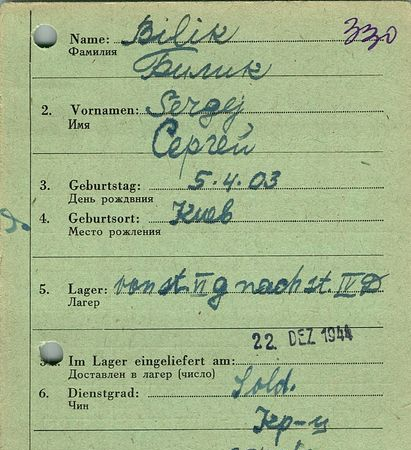 Name: Bilik 330
Фамилия Билик
2. Vornamen: Sergej
Имя Сергей
3. Geburtstag: 5.4.03
День рождвния
4. Geburtsort: Киев
Место рожления
5. Lager: von st. VI g nach st. IV D
Лагер
22. DEZ. 1944
Im Lager eingeliefert am:
Доставлен в лагер (число)
6. Dienstgrad: Sold.
Чин Кр-ц